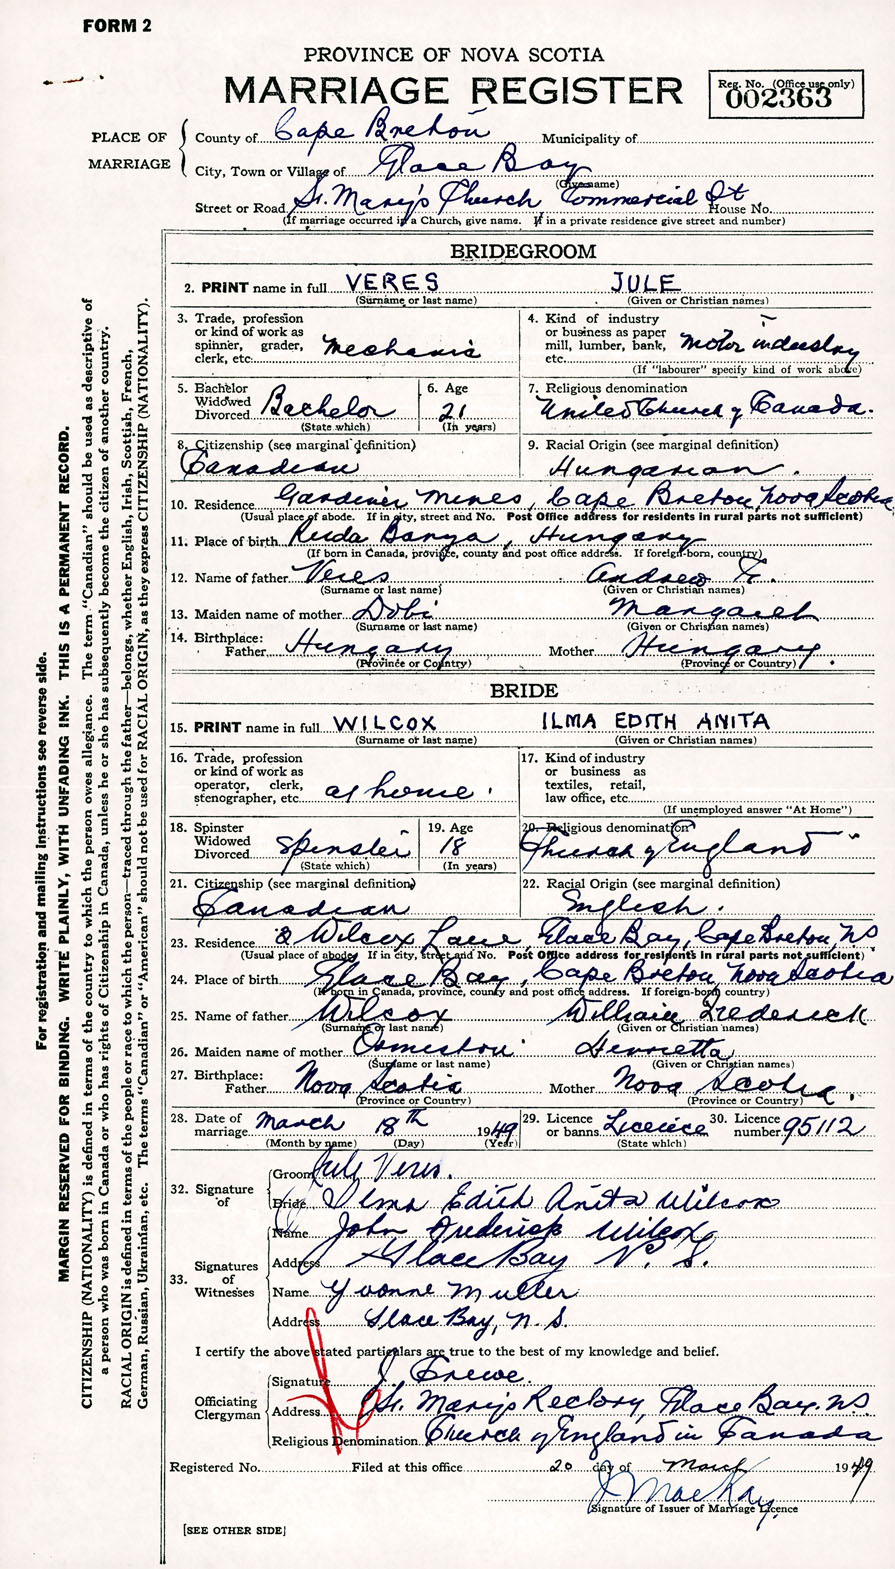 FORM 2
PROVINCE OF NOVA SCOTIA
MARRIAGE REGISTER
Reg. No. (Office use only)
002363
PLACE OF MARRIAGE
County of Cape Breton Municipality of
City, Town or Village of Glace Bay
(Give name)
Street or Road St. Mary's Church Commercial St House No.
(If marriage occurred in a Church, give name. If in a private residence give street and number)
BRIDEGROOM
2. PRINT name in full VERES JULE
(Surname or last name) (Given or Christian names)
3. Trade, profession or kind of work as spinner, grader, clerk, etc. Mechanic
4. Kind of industry or business as paper mill, lumber, bank, etc. Motor industry
(If "labourer" specify kind of work above)
5. Bachelor Widowed Divorced Bachelor
(State which)
6. Age 21
(In years)
7. Religious denomination
United Church of Canada.
8. Citizenship (see marginal definition)
Canadian
9. Racial Origin (see marginal definition)
Hungarian.
10. Residence Gardiner Mines, Cape Breton, Nova Scotia
(Usual place of abode. If in city, street and No. Post Office address for residents in rural parts not sufficient)
11. Place of birth Ruda Banya, Hungary
(If born in Canada, province, county and post office address. If foreign-born, country)
12. Name of father Veres Andrew
(Surname or last name) (Given or Christian names)
13. Maiden name of mother Dobi Margaret
(Surname or last name) (Given or Christian names)
14. Birthplace:
Father Hungary Mother Hungary.
(Province or Country) (Province or Country)
BRIDE
15. PRINT name in full WILCOX ILMA EDITH ANITA
(Surname or last name) (Given or Christian names)
16. Trade, profession or kind of work as operator, clerk, stenographer, etc. at home
17. Kind of industry or business as textiles, retail, law office, etc.
(If unemployed answer "At Home")
18. Spinster Widowed Divorced Spinster
(State which)
19. Age 18
(In years)
20. Religious denomination
Church of England
21. Citizenship (see marginal definition)
Canadian
22. Racial Origin (see marginal definition)
English.
23. Residence 2 Wilcox Lane, Glace Bay, Cape Breton, NS
(Usual place of abode If in city, street and No. Post Office address for residents in rural parts not sufficient)
24. Place of birth Glace Bay, Cape Breton, Nova Scotia
(If born in Canada, province, county and post office address. If foreign-born country)
25. Name of father Wilcox William Frederick
(Surname or last name) (Given or Christian names)
26. Maiden name of mother Ormiston Henrietta
(Surname or last name) (Given or Christian names)
27. Birthplace:
Father Nova Scotia Mother Nova Scotia.
(Province or Country) (Province or Country)
28. Date of marriage March 18th 1949
(Month by name) (Day) (Year)
29. Licence or banns Licence
(State which)
30. Licence number 95112
32. Signature of
Groom Jule Veres.
Bride Ilma Edith Anita Wilcox
33. Signatures of Witnesses
Name John Frederick Wilcox
Address Glace Bay N. S.
Name Yvonne Muller
Address Glace Bay, N. S.
I certify the above stated particulars are true to the best of my knowledge and belief.
Officiating Clergyman
Signature J. Crewe.
Address St. Mary's Rectory, Glace Bay. NS
Religious Denomination Church of England in Canada
Registered No. Filed at this office 20 day of March 1949
J MacKay
Signature of Issuer of Marriage Licence
[SEE OTHER SIDE]
For registration and mailing instructions see reverse side.
MARGIN RESERVED FOR BINDING. WRITE PLAINLY, WITH UNFADING INK. THIS IS A PERMANENT RECORD.
CITIZENSHIP (NATIONALITY) is defined in terms of the country to which the person owes allegiance. The term "Canadian" should be used as descriptive of
a person who was born in Canada or who has rights of Citizenship in Canada, unless he or she has subsequently become the citizen of another country.
RACIAL ORIGIN is defined in terms of the people or race to which the person—traced through the father—belongs, whether English, Irish, Scottish, French,
German, Russian, Ukrainian, etc. The terms "Canadian" or "American" should not be used for RACIAL ORIGIN, as they express CITIZENSHIP (NATIONALITY).